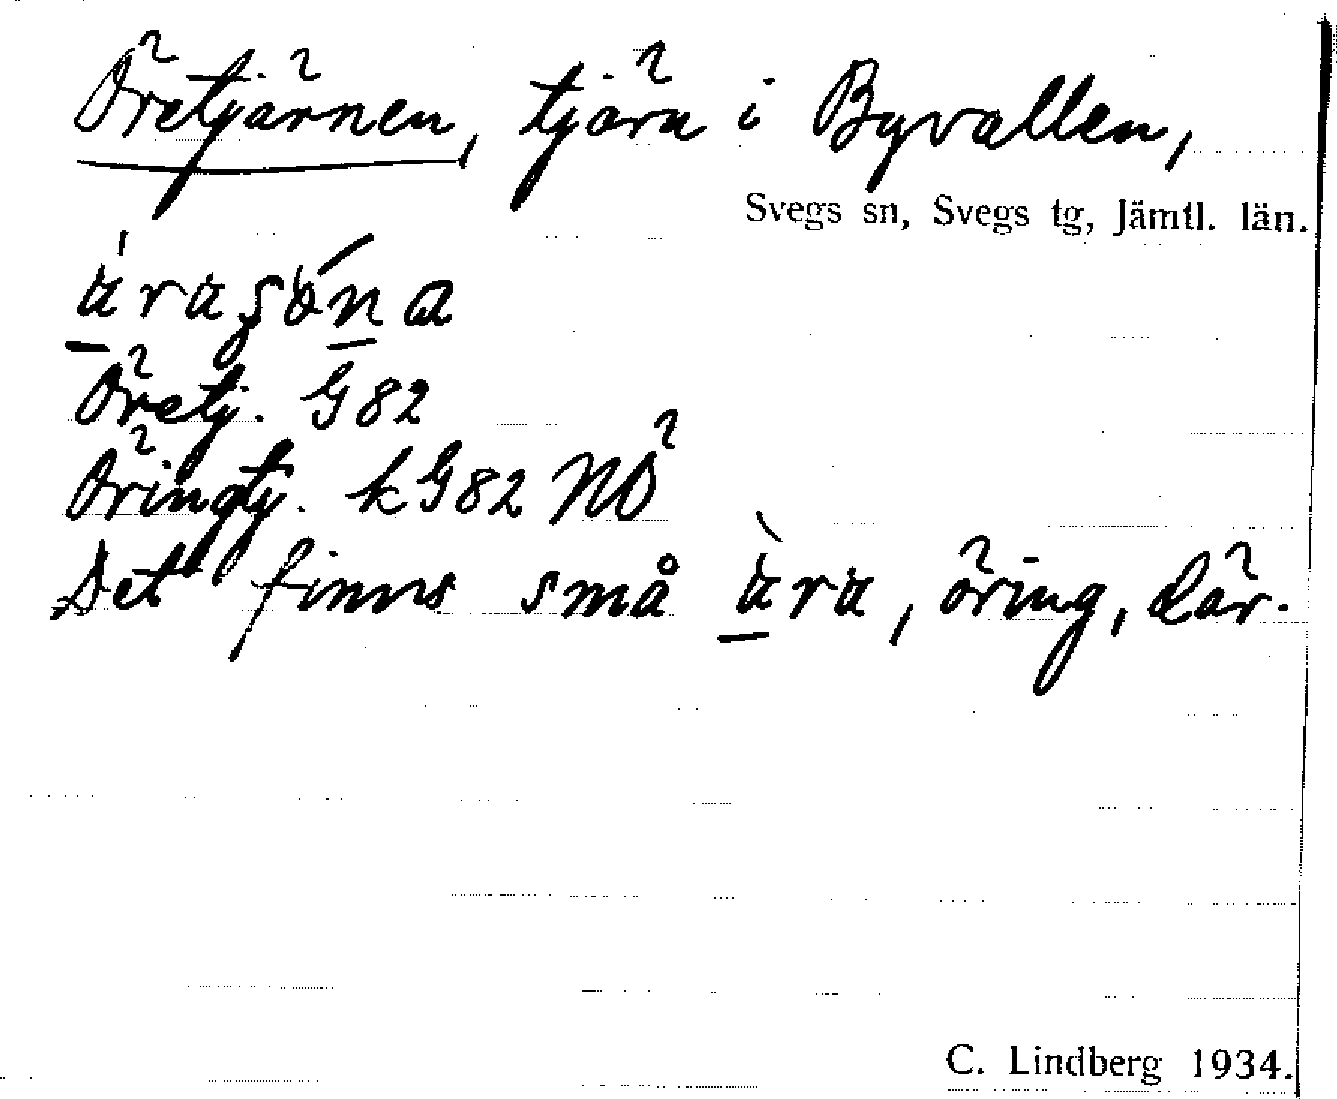 Öretjärnen, tjärn i Byvallen,
Svegs sn, Svegs tg, Jämtl. län.
Öretj. G82
Öringtj. kG82 NÖ
Det finns små ära, öring, där.
C. Lindberg 1934.